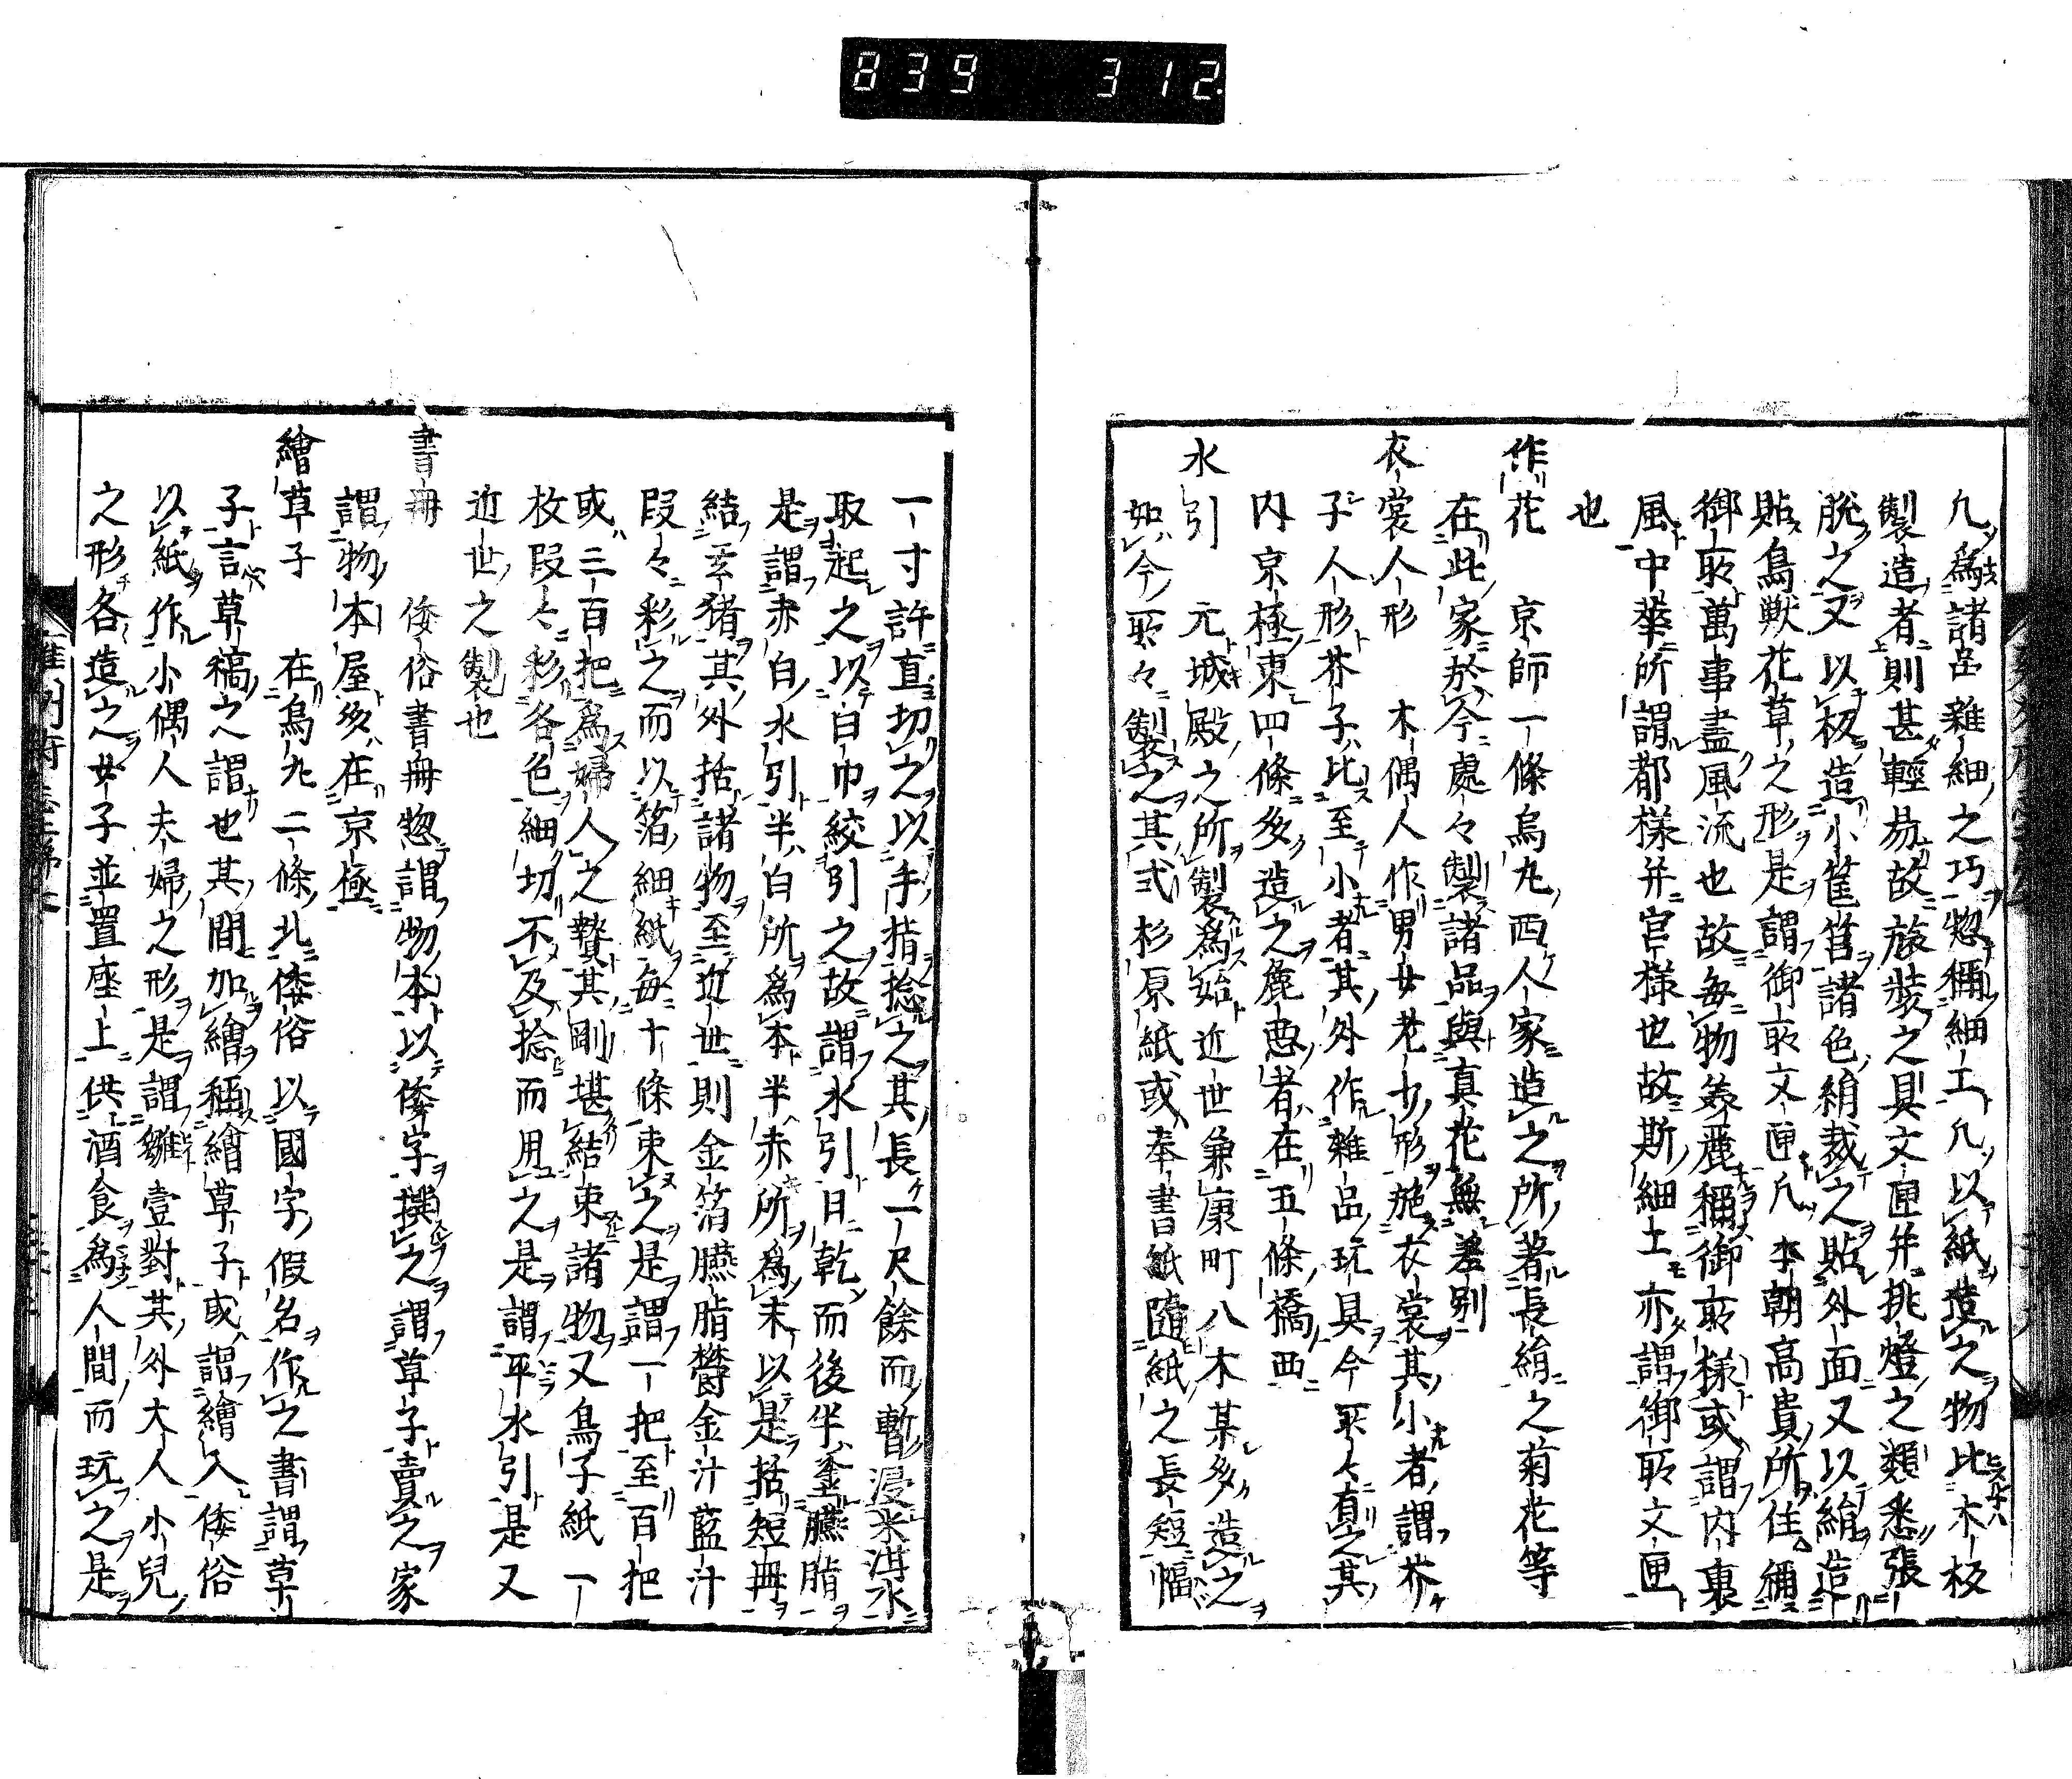 839 312
凡為諸品雜細之巧惣稱細工凡以紙造之物比木板
製造者則甚輕易故旅裝之具文匣并挑燈之類悉張
脫之又以板造小筐筥諸色絹裁之貼外面又以絹造
貼鳥獸花草之形是謂御所文匣凡本朝高貴所住稱
御所萬事盡風流也故每物美麗稱御所樣或謂內裏
風中華所謂都樣并官樣也故斯細工亦謂御所文匣
也
作花 京師一條烏丸西人家造之所著長絹之菊花等
在此家於今處々製諸品與真花無差別
衣裳人形 木偶人作男女老少形施衣裳其小者謂芥
子人形芥子比至小者其外作雜品玩具今所々有之其
內京極東四條多造之麁惡者在五條橋西
水引 元城殿之所製為始近世兼康町八木某多造之
如今所々製之其式杉原紙或奉書紙隨紙之長短幅
一寸許直切之以手指捻之其長一尺餘而暫浸米泔水
取起之以白巾絞引之故謂水引日乾而後半塗臙脂
是謂赤白水引半白所為本半赤所為末以是括短冊
結玄猪其外括諸物至近世則金箔臙脂欝金汁藍汁
段々彩之而以箔細紙每十條束之是謂一把至百把
或二百把為婦人之贄其剛堪結束諸物又鳥子紙一
枚段々彩各色細切不及捻而用之是謂平水引是又
近世之製也
書冊 倭俗書冊惣謂物本以倭字撰之謂草子賣之家
謂物本屋多在京極
繪草子 在烏丸二條北倭俗以國字假名作之書謂草
子言草稿之謂也其間加繪稱繪草子或謂繪入倭俗
以紙作小偶人夫婦之形是謂雛壹對其外大人小兒
之形各造之女子並置座上供酒食為人間而玩之是